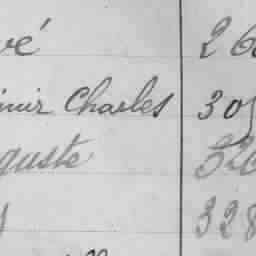 vé 26
imir Charles 305
guste 326
328